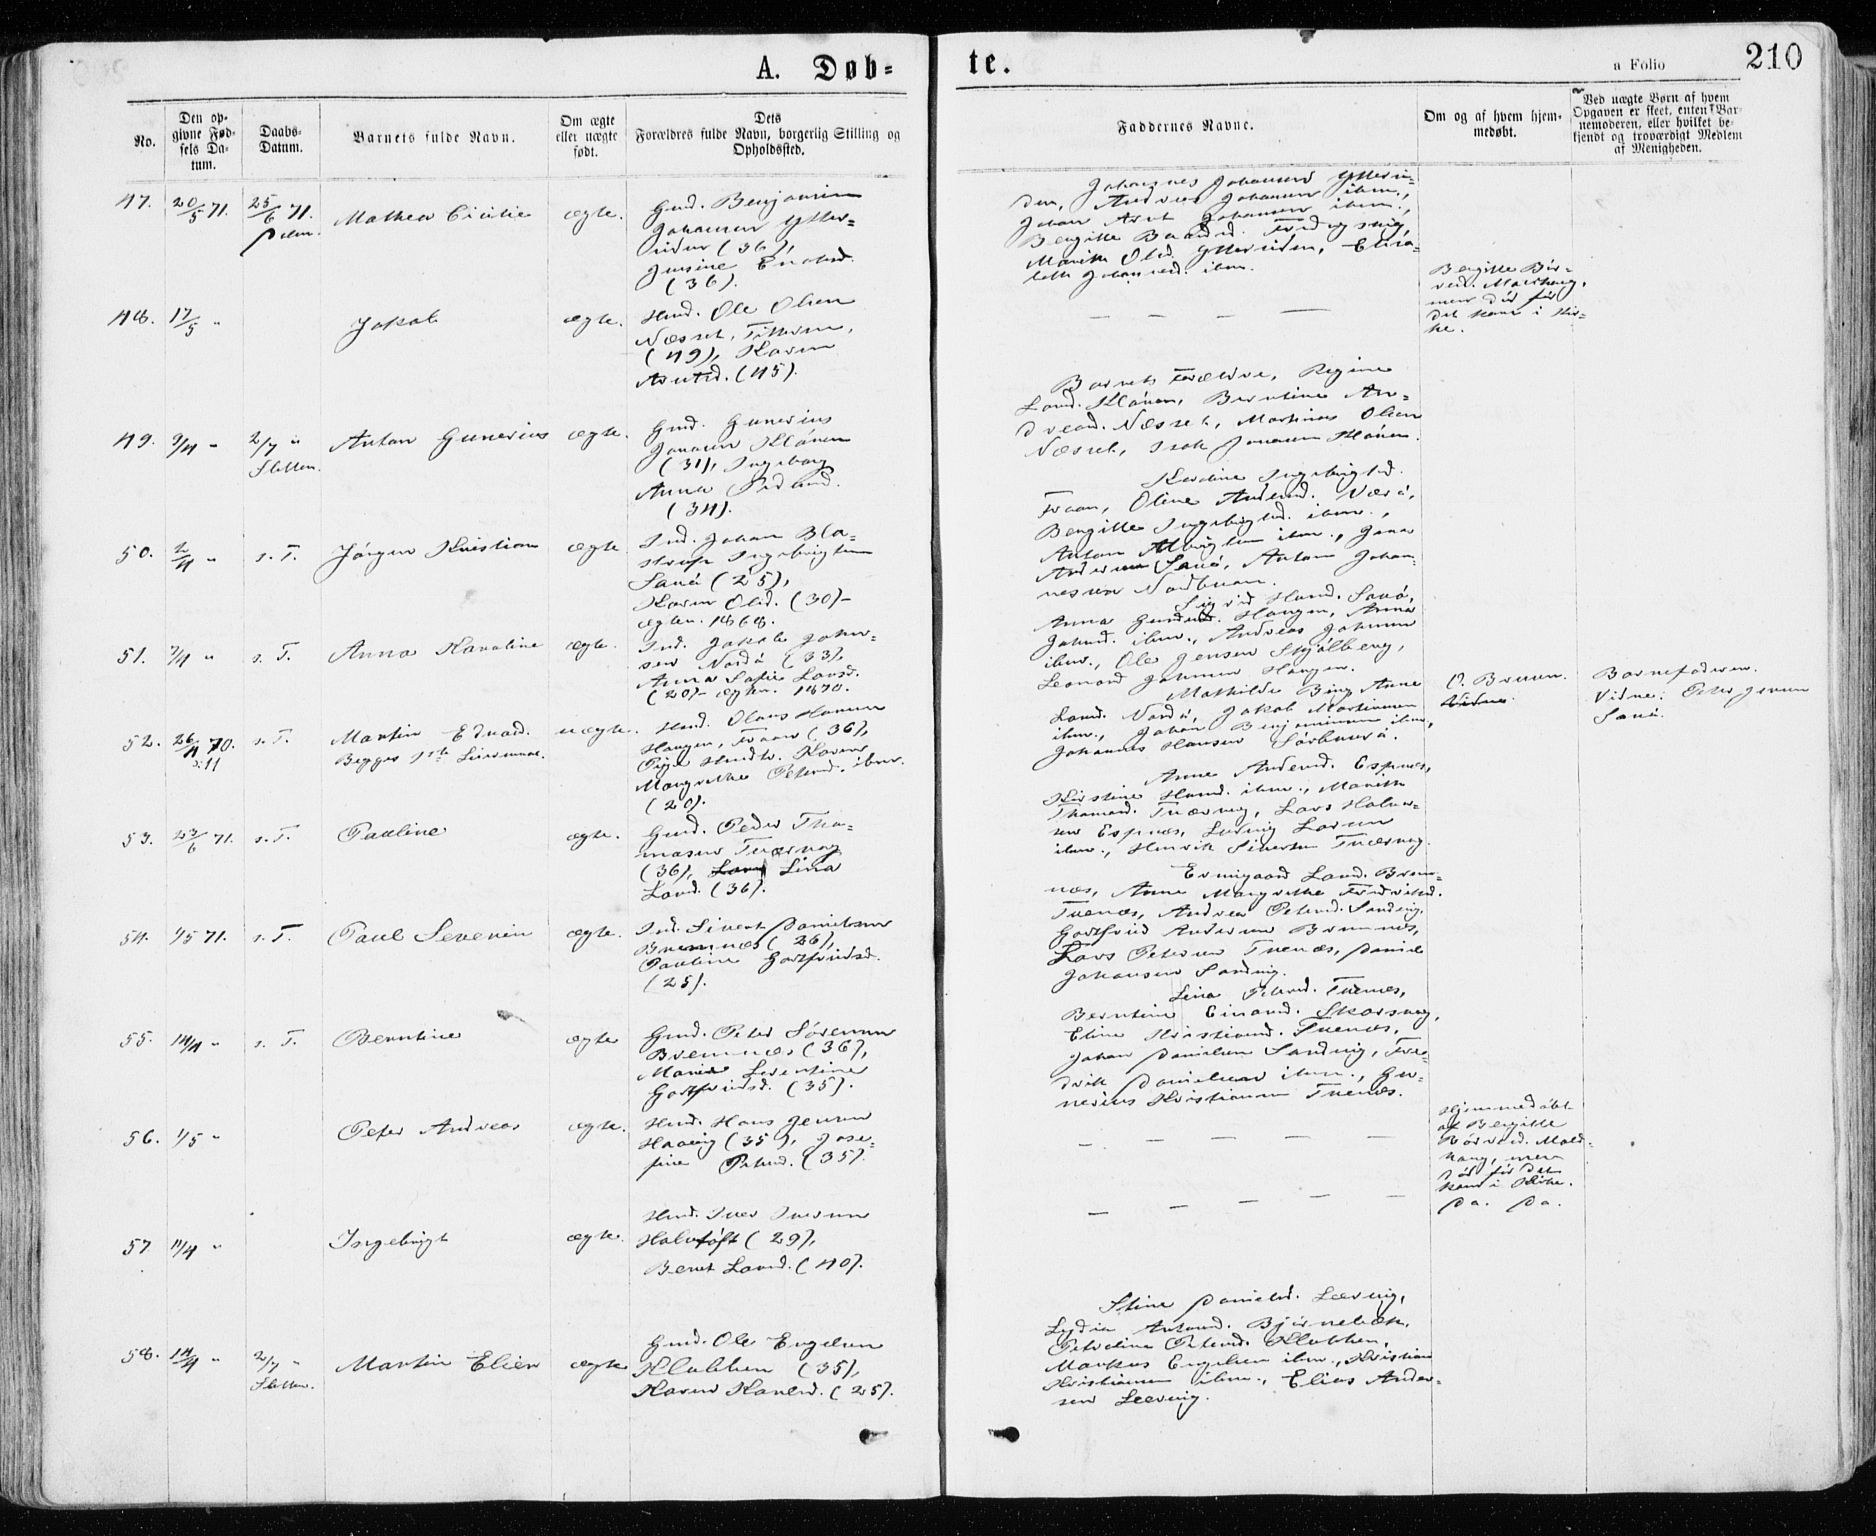 A. Døb-
te.
a Folio
210
No.
Den op-
givne Fød-
sels Da-
tum.
Daabs-
Datum.
Barnets fulde Navn.
Om ægte
eller uægte
født.
Dets
Forældres fulde Navn, borgerlig Stilling og
Opholdssted.
Faddernes Navne.
Om og af hvem hjem-
medøbt.
Ved uægte Børn af hvem
Opgaven er skeet, enten Bar-
nemoderen, eller hvilket be-
kjendt og troværdigt Medlem
af Menigheden.
47.
20/5 71.
25/6 71.
Mathea Cicilie
ægte.
Gmd. Benjamin
Johansen Ytter-
siden (36),
(36).
Johannes Johansen Ytter
den, Andreas Johansen ibm.,
Johan Johansen ibm.,
Bergitte
Marith Olsd. Ytersiden, Elisa-
beth ibm.
48.
17/5 "
Jakob
ægte.
Hmd. Ole Olsen
Næsset, Titteren,
(49), Karen
Arntsd. (45).
— — — —
Bergitte Bør-
men død før
det kom i Kir-
ke.
49.
9/4 "
2/7 "
Sletten.
Anton Gunerius
ægte.
Gmd. Gunerius
Jonasen Kløven
(31), Ingeborg
Anna
(34).
Barnets Forældre, Regine
Larsd. Kløven, Berntine An-
dread. Næsset, Martinus Olsen
Næsset, Isak Jonasen Kløven.
50.
2/4 "
s. T.
Jørgen Kristian
ægte
Ind. Johan Bla-
strup Ingebrigtsen
Sauø (25),
Karen Olsd. (30)-
ægtev. 1868.
Karoline Ingebrigtsd.
Fraan, Oline Andersd.
Bergitte Ingebrigtsd. ibm.,
Anton ibm., Jens
Andersen Sauø, Anton Johan-
nessen Nordbuan.
51.
7/4 "
s. T.
Anna Karoline
ægte.
Ind. Jakob John-
sen Nordø (33),
Anna Sofie Larsd.
(20)- ægtev. 1870.
Sigrid Hansd. Sauø,
Anna Hangen, Anna
Johnsd. ibm., Andreas Johnsen
ibm., Ole Jensen Skjølberg,
Leonard Johnsen Hangen.
52.
26/4 70.
s. T.
Martin Edvard.
Begges 1ste Leiermaal.
uægte.
Hmd. Olaus Hansen
Hangen, Fraan (36),
Pige Karen
Margrethe Petersd. ibm.
(20).
Mathilde Bing Anne
Larsd. Nordø, Jakob Martinsen
ibm., Johan Benjaminsen ibm.,
Johannes Hansen Sørburø.
O. Bruun.
Barnefaderen.
Vidne: Peter Jensen
Sauø.
53.
23/6 71.
s. T.
Pauline
ægte.
Gmd. Peder Tho-
masen Tværvaag
(36), Lina
Larsd. (36).
Anne Andersd. Espnes,
Kirstine Hansd. ibm., Marith
Thomasd. Tværvag, Lars Halvor-
sen Espnæs, Ludvig Larsen
ibm., Henrik Sivertsen Tværvag.
54.
1/5 71.
s. T.
Paul Severin
ægte.
Ind. Sivert Danielsen
Bremnæs (26),
Pauline Gotfriedsd.
(25).
Ermegaard Larsd. Brem-
næs, Anne Margrethe Fredriksd.
Tuenæs, Andrea Petersd. Sandvig,
Gotfried Andersen Bremnæs,
Lars Petersen Tuenæs, Daniel
Johansen Sandvig.
55.
14/4 "
s. T.
Berntine
ægte
Gmd. Peter Sørensen
Bremnæs (36),
Marie Lorentine
Gotfriedsd. (35).
Lina Petersd. Tuenæs,
Berntine Einarsd. Skarsvag,
Eline Kristiansd. Tuenæs,
Johan Danielsen Sandvig, Fre-
drik Danielsen ibm., Gu-
nerius Kristiansen Tuenæs.
56.
1/5 "
Peter Andreas
ægte.
Hmd. Hans Jensen
Haavig (35), Jose-
fine Petersd. (35).
— — — — —
Hjemmedøbt
af Bergitte
men
død før det
kom i Kirke.
57
11/4 "
Ingebrigt
ægte.
Hmd. Iver Iversen
Halvtøft (29),
Beret Larsd. (40).
— — — — —
Do. Do.
58.
14/4 "
2/7 "
Sletten.
Martin Elien
ægte
Gmd. Ole Engelsen
Klubben (35),
Karen Karlsd. (25).
Stine Danielsd. Leervig,
Lydia Antonsd. Bjørnebæk,
Petrolina Petersd. Klubben,
Markus Engelsen ibm., Kristian
Kristiansen ibm., Elias Ander-
sen Leervig.